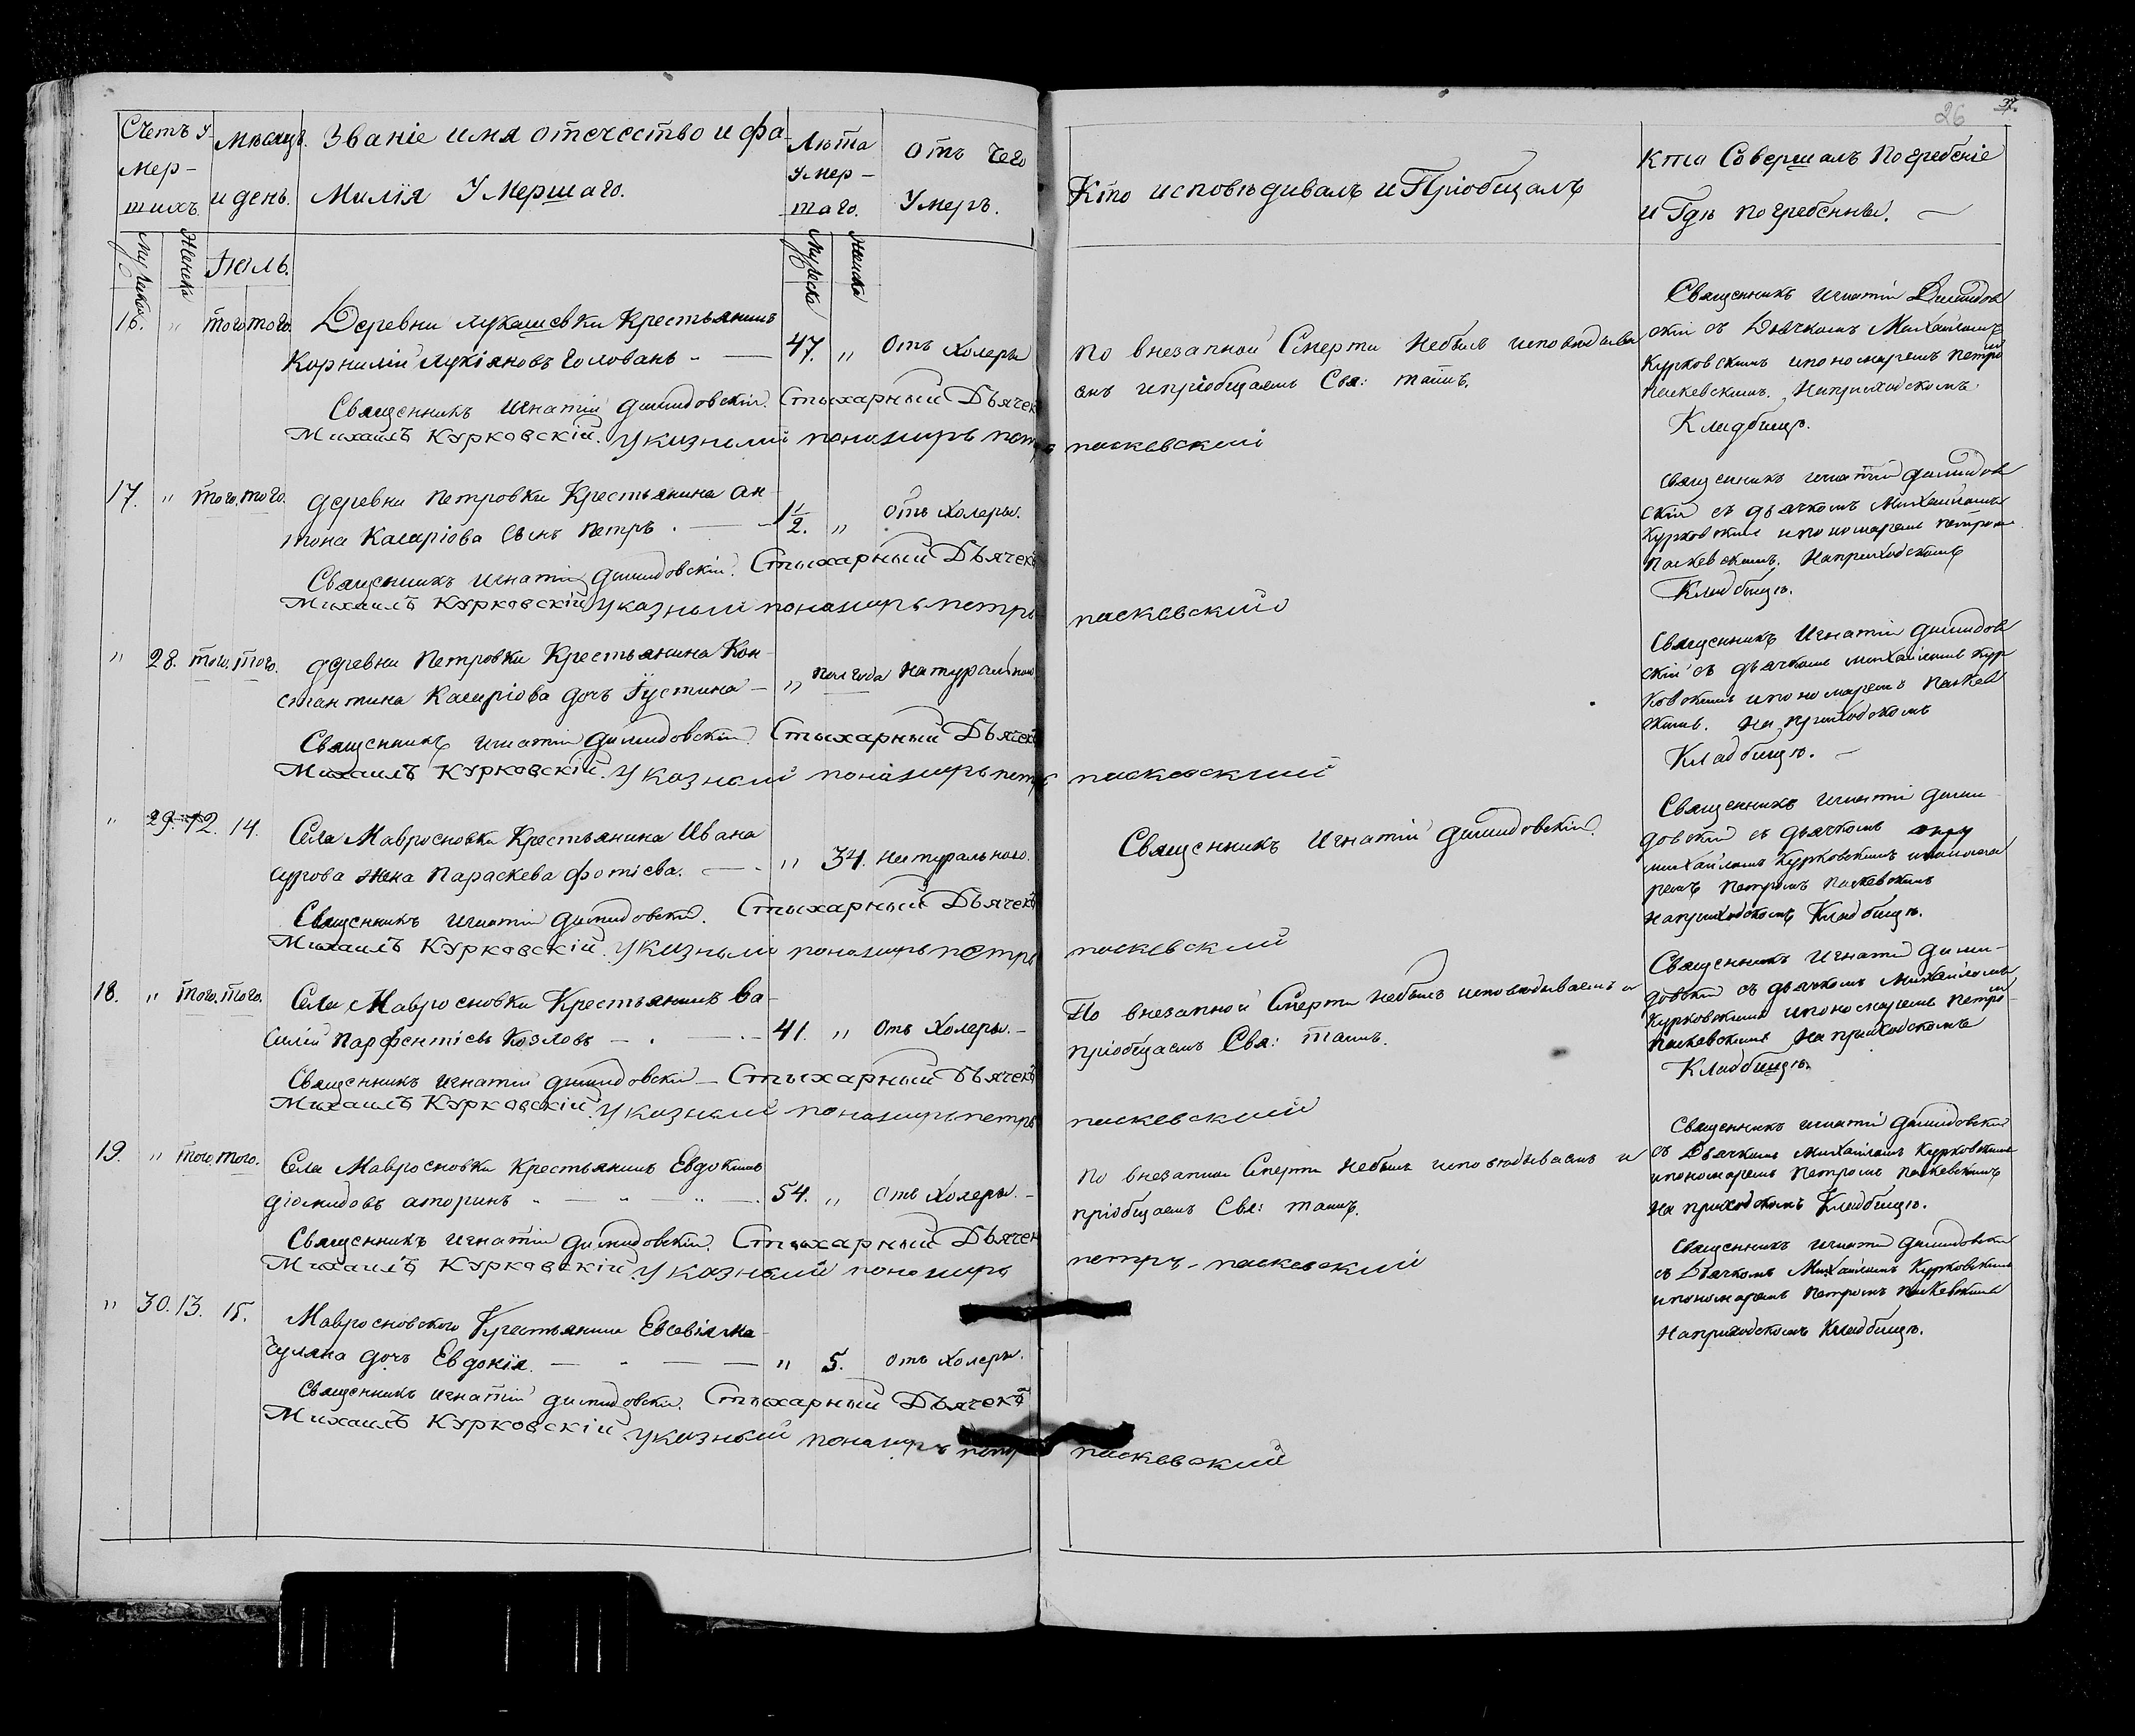 26
Счетъ у-
мер-
шихъ.
Мѣсяцъ
и день.
Званіе имя отечество и фа-
милія Умершаго.
Лѣта
Умер-
шаго.
Отъ чего
Умеръ.
Кто исповѣдивалъ и Пріобщалъ
Кто Совершалъ Погребеніе
и Гдѣ погребенны.
Мужеска
Женска
Іюль.
Мужеска
Женска
16. " того того. Деревни Лукашевки Крестьянинъ
Корнилій Лукіяновъ Голованъ - — 47. " Отъ Холеры
Священникъ Игнатій Димидовскій. Стыхарный Дьячекъ
Михаилъ Курковскій. Указный понамирь петръ паскевский
По внезапной Смерти небылъ исповѣдыва
емъ и пріобщаемъ Свя: таинъ.
Священникъ Игнатій Димидов
скій съ Дьячкомъ Михаиломъ
Курковскимъ и пономаремъ Петромъ
Паскевскимъ. На приходскомъ
Кладбищѣ.
17. " того. того. деревни Петровки Крестьянина Ан-
тона Касаріова Сынъ Петръ. — 1 1/2. " Отъ Холеры.
Священникъ Игнатій Димидовскій. Стыхарный Дьячекъ
Михаилъ Курковскій Указный понамирь петръ паскевский
Священникъ Игнатій Димидов
скій съ дьячкомъ Михаиломъ
Курковскимъ и пономаремъ Петромъ
Паскевскимъ. На приходскомъ
Кладбищѣ.
" 28. того. того. деревни Петровки Крестьянина Кон-
стантина Касаріова дочь Іустина — " пол года натурально
Священникъ Игнатій Димидовскій. Стыхарный Дьячекъ
Михаилъ Курковскій. Указный понамирь петръ паскевский
Священникъ Игнатій Димидов
скій съ дьячкомъ Михаиломъ Кур
ковскимъ и пономаремъ Паскев
скимъ. На приходскомъ
Кладбищѣ. —
" 29. 12. 14. Села Мавросновки Крестьянина Ивана
жена Параскева Фотіева. — " 34. натурального.
Священникъ Игнатій Димидовскій. Стыхарный Дьячекъ
Михаилъ Курковскій. Указный понамирь петръ паскевский
Священникъ Игнатій Димидовскій.
Священникъ Игнатій Дими
довскій съ дьячкомъ
Михаиломъ Курковскимъ и понома
ремъ Петромъ Паскевскимъ
на приходскомъ Кладбищѣ.
18. " того. того. Села Мавросновки Крестьянинъ Ва-
силій Парфентіевъ Козловъ — . — 41. " Отъ Холеры. —
Священникъ Игнатій Димидовскій — Стыхарный Дьячекъ
Михаилъ Курковскій. Указный понамирь петръ паскевский
По внезапной Смерти небылъ исповѣдываемъ и
пріобщаемъ Свя: таинъ.
Священникъ Игнатій Дими-
довскій съ дьячкомъ Михаиломъ
Курковскимъ и пономаремъ Петромъ
Паскевскимъ На приходскомъ
Кладбищѣ.
19. " того. того. Села Мавросновки Крестьянинъ Евдокимъ
Діомидовъ Аторинъ - — " — " — 54. " Отъ Холеры. —
Священникъ Игнатій Димидовскій. Стыхарный Дьячек
Михаилъ Курковскій. Указный понамирь петръ - паскевский
По внезапной Смерти небылъ исповѣдываемъ и
пріобщаемъ Свя: таинъ.
Священникъ Игнатій Димидовскій
съ Дьячкомъ Михаиломъ Курковскимъ
и пономаремъ Петромъ Паскевскимъ
На приходскомъ Кладбищѣ.
" 30. 13. 15. Мавросновского Крестьянина Евсевія Ма-
чуляна дочь Евдокія. — - — — " 5. отъ Холеры.
Священникъ Игнатій Димидовскій. Стыхарный Дьячекъ
Михаилъ Курковскій. Указный понамирь петръ паскевский
Священникъ Игнатій Димидовскій
съ Дьячкомъ Михаиломъ Курковскимъ
и пономаремъ Петромъ Паскевскимъ
На приходскомъ Кладбищѣ.